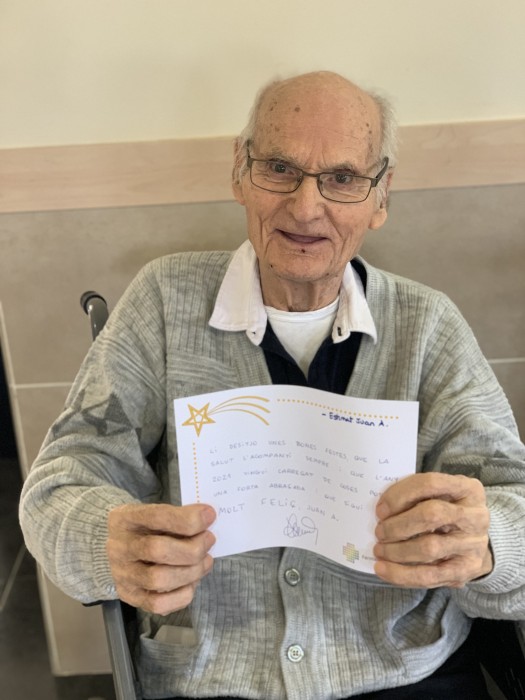 - Estimat Juan A.
LI DESITJO UNES BONES FESTES QUE LA
SALUT L'ACOMPANYI SEMPRE I QUE L'ANY
2021 VINGUI CARREGAT DE COSES
UNA FORTA ABRAÇADA I QUE SIGUI
MOLT FELIÇ, JUAN A.